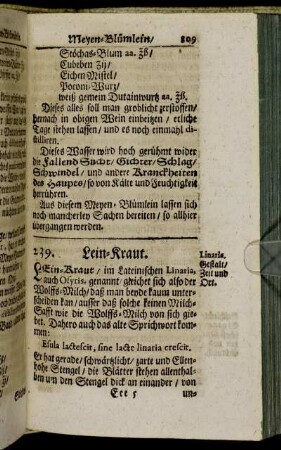 Meyen-Blümlein/ 809
Stöchas-Blum aa. ℥ß/
Cubeben ʒij/
Eichen Mistel/
Poeoni-Wurz/
weiß gemein Diptamwurtz aa. ℥ß.
Dieses alles soll man gröblicht zerstossen/
hernach in obigen Wein einbeitzen / etliche
Tage stehen lassen / und es noch einmahl di-
stilliren.
Dieses Wasser wird hoch gerühmt wider
die Fallend Sucht/ Gichter/ Schlag/
Schwindel / und andere Kranckheiten
des Hauptes/ so von Kälte und Feuchtigkeit
herrühren.
Aus diesem Meyen-Blümlein lassen sich
noch mancherley Sachen bereiten / so allhier
übergangen werden.
239. Lein-Kraut.
LEin-Kraut/ im Lateinischen Linaria,
auch Osyris. genannt gleichet sich also der
Wolffs-Milch/ daß man beyde kaum unter-
scheiden kan/ ausser daß solche keinen Milch-
Safft wie die Wolffs-Milch von sich gi-
bet. Dahero auch das alte Sprichwort kom-
men:
Esula lactescit, sine lacte linaria crescit.
Er hat gerade/ schwärtzlicht/ zarte und Ellen-
hohe Stengel/ die Blätter stehen allenthal-
ben um den Stengel dick an einander / von
Eee 5 un-
Linaria,
Gestalt/
Zeit und
Ort.